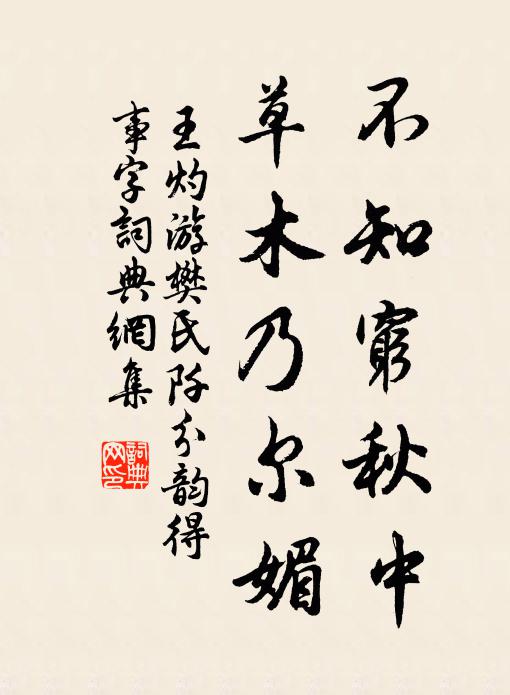 不知窮秋中
草木乃尔媚
王灼游樊氏阡分韵得
事字詞典網集
詞典
网印